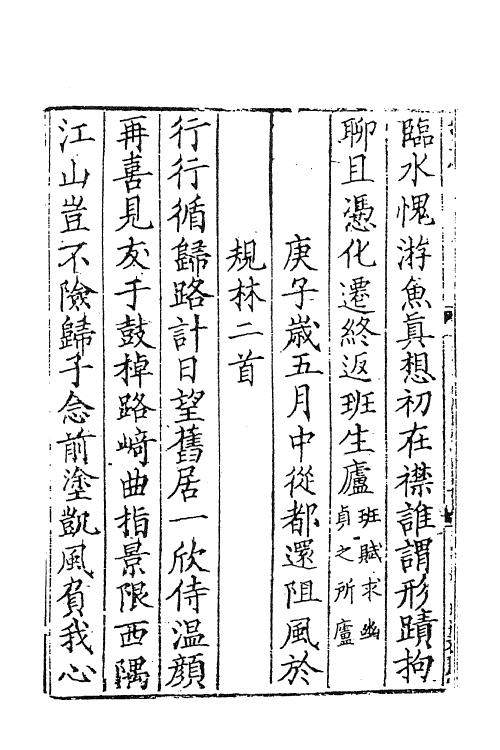 臨水愧游魚真想初在襟誰謂形蹟拘
聊且憑化遷終返班生廬班賦求幽貞之所廬
庚子歲五月中從都還阻風於
規林二首
行行循歸路計日望舊居一欣侍温顔
再喜見友于鼓棹路﨑曲指景限西隅
江山豈不險歸子念前塗凱風負我心